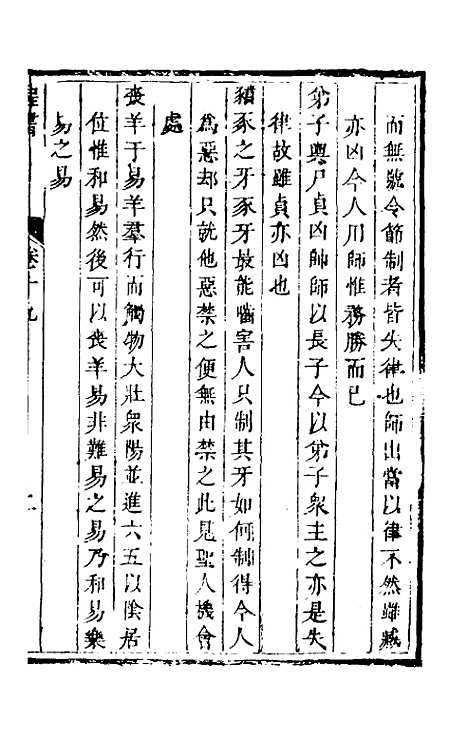 而無號令節制者皆失律也師出當以律不然雖臧
亦凶今人用師惟務勝而已
弟子輿尸貞凶帥師以長子今以弟子衆主之亦是失
律故雖貞亦凶也
豶豕之牙豕牙最能嚙害人只制其牙如何制得今人
爲惡却只就他惡禁之便無由禁之此見聖人機會
處
喪羊于易羊羣行而觸物大壯衆陽並進六五以陰居
位惟和易然後可以喪羊易非難易之易乃和易樂
易之易
程書
卷十九
二